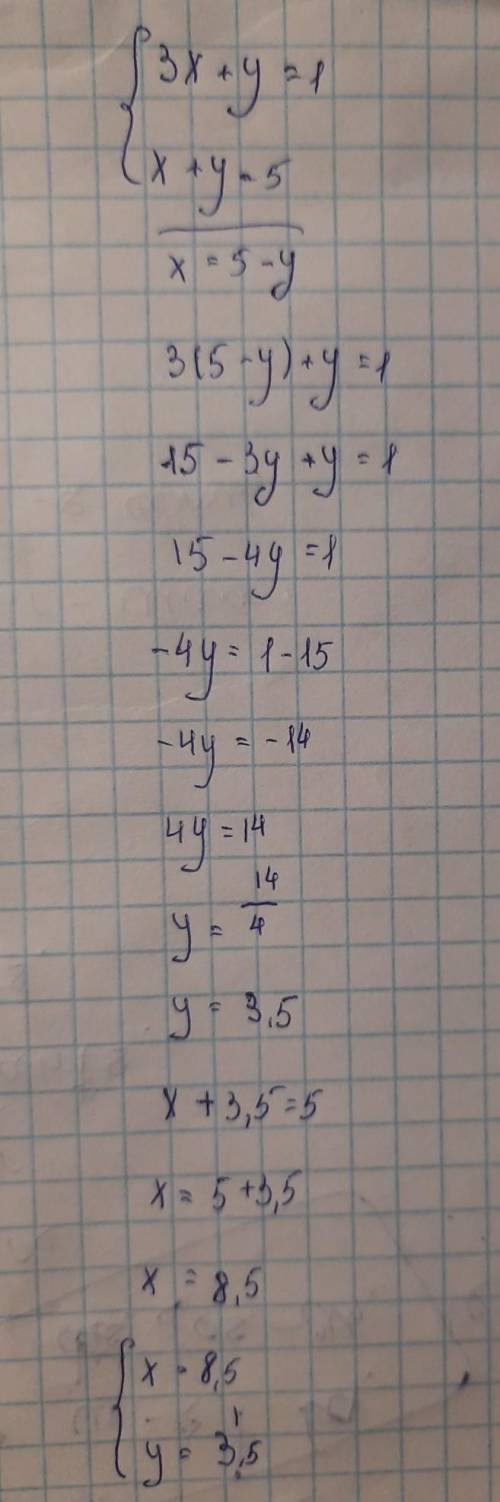 3x + y = 1
x + y = 5
x = 5 - y
3(5 - y) + y = 1
15 - 3y + y = 1
15 - 4y = 1
-4y = 1 - 15
-4y = -14
4y = 14
y = 14/4
y = 3,5
x + 3,5 = 5
x = 5 + 3,5
x = 8,5
x = 8,5
y = 3,5